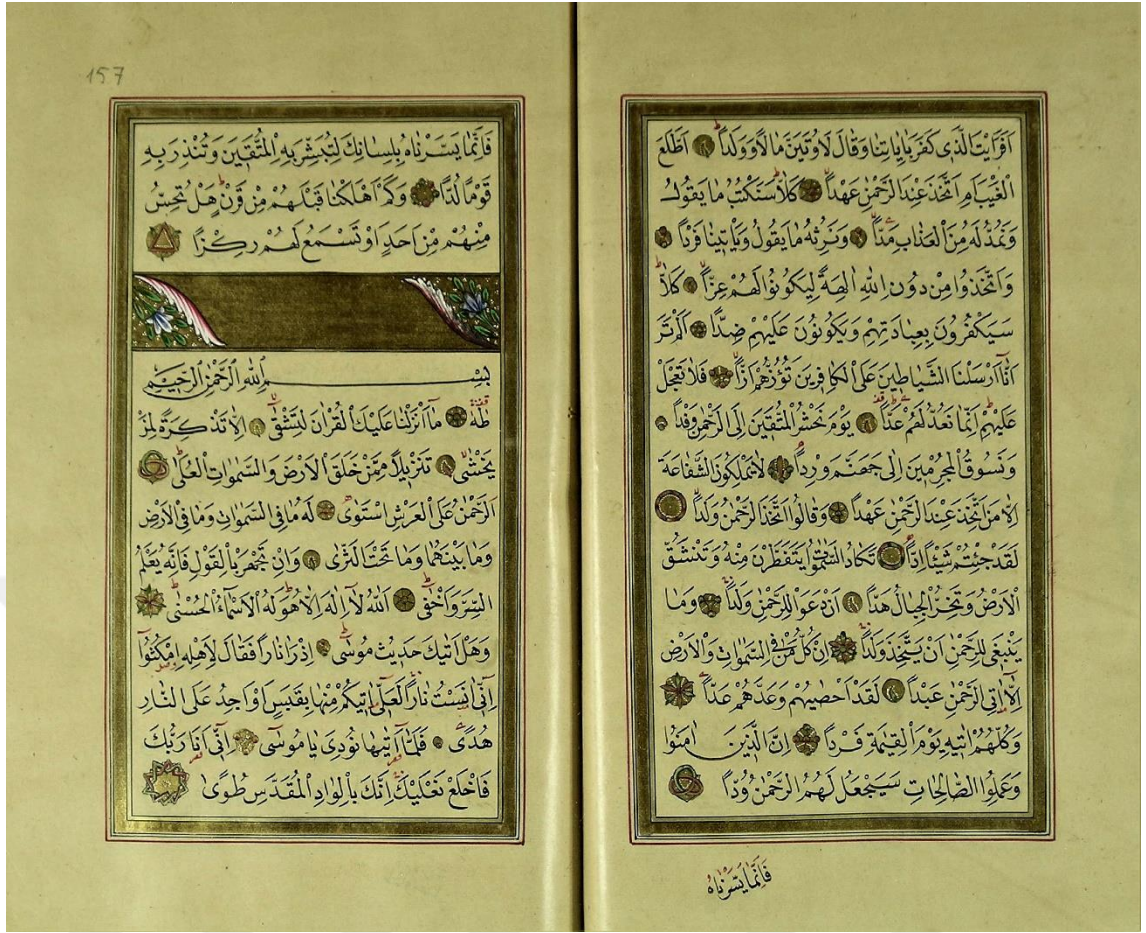 اَفَرَاَيْتَ الَّذ۪ى كَفَرَ بِاٰيَاتِنَا وَقَالَ لَاُوتَيَنَّ مَالًا وَوَلَدًا اَطَّلَعَ
الْغَيْبَ اَمِ اتَّخَذَ عِنْدَ الرَّحْمٰنِ عَهْدًا كَلَّا سَنَكْتُبُ مَا يَقُولُ
وَنَمُدُّ لَهُ مِنَ الْعَذَابِ مَدًّا وَنَرِثُهُ مَا يَقُولُ وَيَاْت۪ينَا فَرْدًا
وَاتَّخَذُوا مِنْ دُونِ اللّٰهِ اٰلِهَةً لِيَكُونُوا لَهُمْ عِزًّا كَلَّا
سَيَكْفُرُونَ بِعِبَادَتِهِمْ وَيَكُونُونَ عَلَيْهِمْ ضِدًّا اَلَمْ تَرَ
اَنَّا اَرْسَلْنَا الشَّيَاط۪ينَ عَلَى الْكَافِر۪ينَ تَؤُزُّهُمْ اَزًّا فَلَا تَعْجَلْ
عَلَيْهِمْ اِنَّمَا نَعُدُّ لَهُمْ عَدًّا يَوْمَ نَحْشُرُ الْمُتَّق۪ينَ اِلَى الرَّحْمٰنِ وَفْدًا
وَنَسُوقُ الْمُجْرِم۪ينَ اِلٰى جَهَنَّمَ وِرْدًا لَا يَمْلِكُونَ الشَّفَاعَةَ
اِلَّا مَنِ اتَّخَذَ عِنْدَ الرَّحْمٰنِ عَهْدًا وَقَالُوا اتَّخَذَ الرَّحْمٰنُ وَلَدًا
لَقَدْ جِئْتُمْ شَيْئًا اِدًّا تَكَادُ السَّمٰوَاتُ يَتَفَطَّرْنَ مِنْهُ وَتَنْشَقُّ
الْاَرْضُ وَتَخِرُّ الْجِبَالُ هَدًّا اَنْ دَعَوْا لِلرَّحْمٰنِ وَلَدًا وَمَا
يَنْبَغ۪ى لِلرَّحْمٰنِ اَنْ يَتَّخِذَ وَلَدًا اِنْ كُلُّ مَنْ فِى السَّمٰوَاتِ وَالْاَرْضِ
اِلَّا اٰتِى الرَّحْمٰنِ عَبْدًا لَقَدْ اَحْصٰيهُمْ وَعَدَّهُمْ عَدًّا
وَكُلُّهُمْ اٰت۪يهِ يَوْمَ الْقِيٰمَةِ فَرْدًا اِنَّ الَّذ۪ينَ اٰمَنُوا
وَعَمِلُوا الصَّالِحَاتِ سَيَجْعَلُ لَهُمُ الرَّحْمٰنُ وُدًّا
فَاِنَّمَا يَسَّرْنَاهُ
157
فَاِنَّمَا يَسَّرْنَاهُ بِلِسَانِكَ لِتُبَشِّرَ بِهِ الْمُتَّق۪ينَ وَتُنْذِرَ بِهِ
قَوْمًا لُدًّا وَكَمْ اَهْلَكْنَا قَبْلَهُمْ مِنْ قَرْنٍ هَلْ تُحِسُّ
مِنْهُمْ مِنْ اَحَدٍ اَوْ تَسْمَعُ لَهُمْ رِكْزًا
بِسْمِ اللّٰهِ الرَّحْمٰنِ الرَّح۪يمِ
طٰهٰ مَا اَنْزَلْنَا عَلَيْكَ الْقُرْاٰنَ لِتَشْقٰى اِلَّا تَذْكِرَةً لِمَنْ
يَخْشٰى تَنْز۪يلًا مِمَّنْ خَلَقَ الْاَرْضَ وَالسَّمٰوَاتِ الْعُلٰى
اَلرَّحْمٰنُ عَلَى الْعَرْشِ اسْتَوٰى لَهُ مَا فِى السَّمٰوَاتِ وَمَا فِى الْاَرْضِ
وَمَا بَيْنَهُمَا وَمَا تَحْتَ الثَّرٰى وَاِنْ تَجْهَرْ بِالْقَوْلِ فَاِنَّهُ يَعْلَمُ
السِّرَّ وَاَخْفٰى اَللّٰهُ لَا اِلٰهَ اِلَّا هُوَ لَهُ الْاَسْمَاءُ الْحُسْنٰى
وَهَلْ اَتٰيكَ حَد۪يثُ مُوسٰى اِذْ رَاٰ نَارًا فَقَالَ لِاَهْلِهِ امْكُثُوا
اِنّ۪ى اٰنَسْتُ نَارًا لَعَلّ۪ى اٰت۪يكُمْ مِنْهَا بِقَبَسٍ اَوْ اَجِدُ عَلَى النَّارِ
هُدًى فَلَمَّا اَتٰيهَا نُودِىَ يَا مُوسٰى اِنّ۪ى اَنَا رَبُّكَ
فَاخْلَعْ نَعْلَيْكَ اِنَّكَ بِالْوَادِ الْمُقَدَّسِ طُوًى